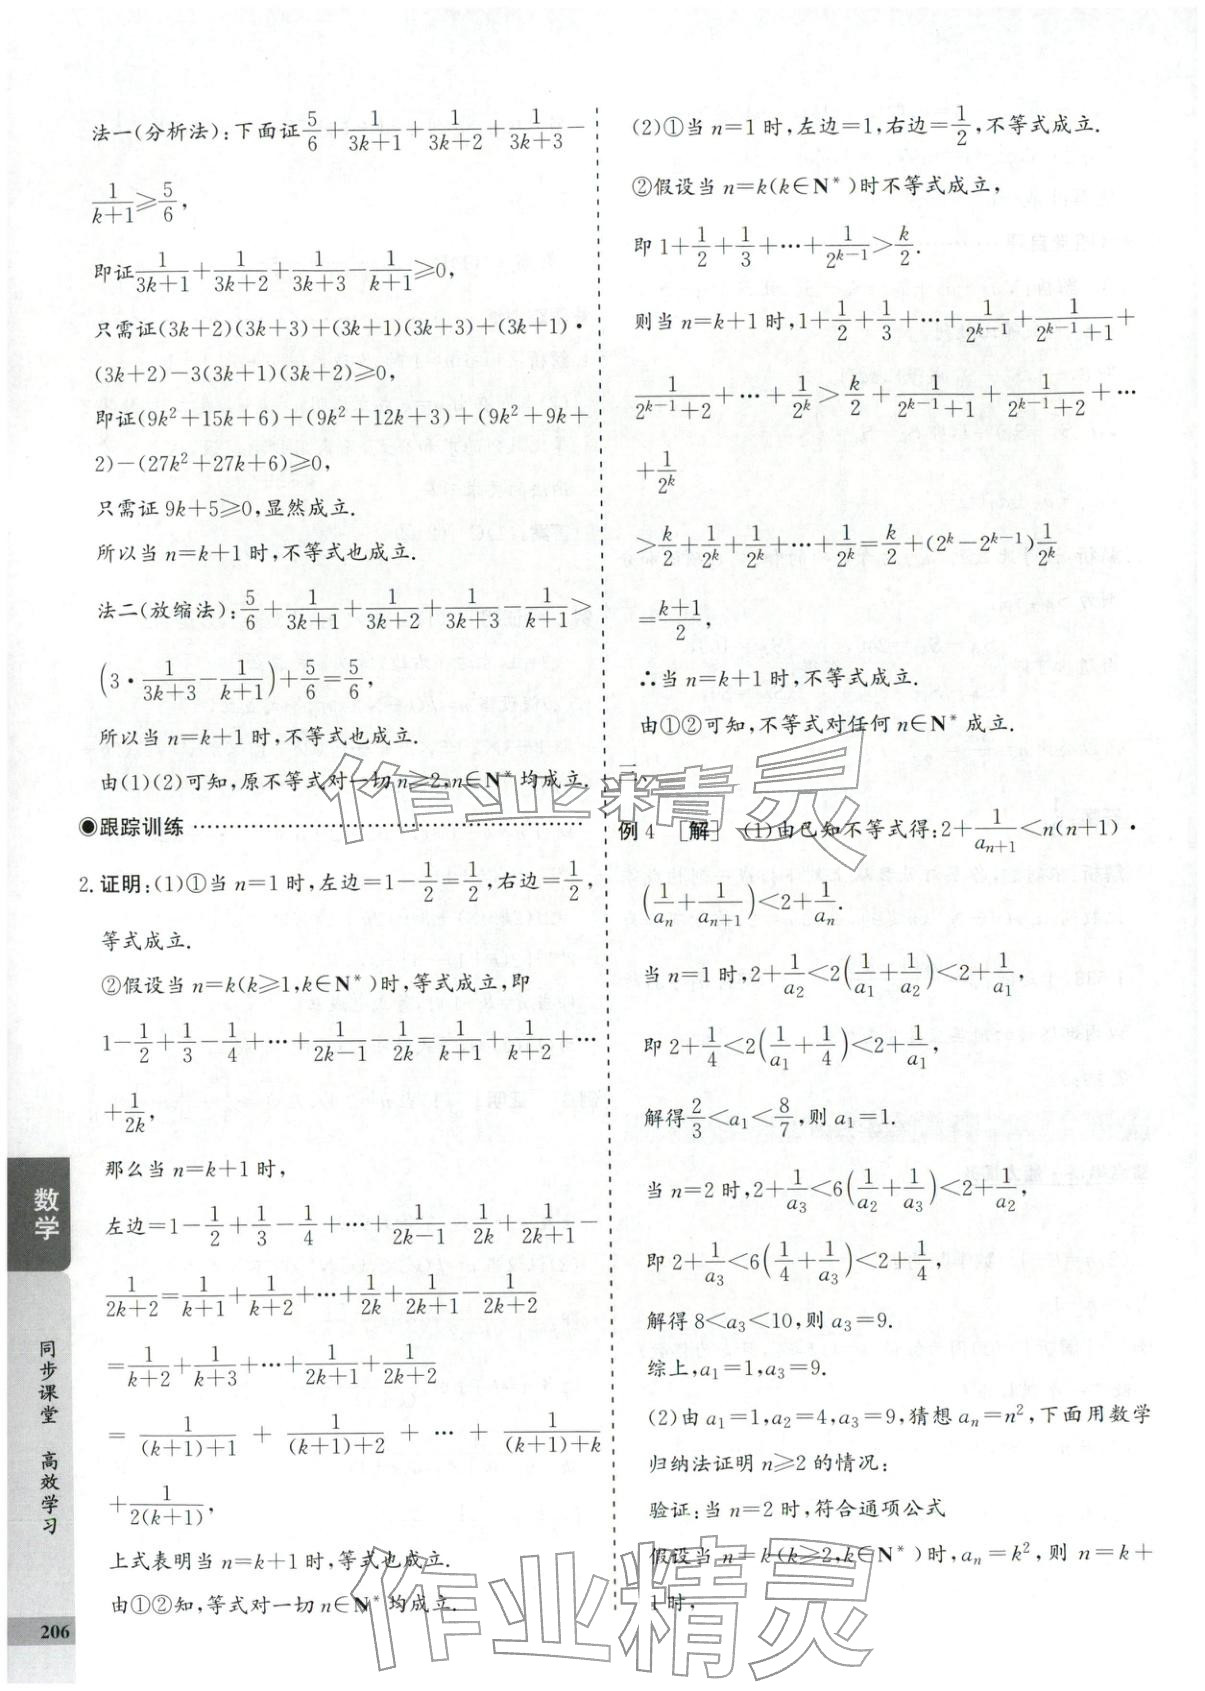 法一(分析法):下面证5/6+1/(3k+1)+1/(3k+2)+1/(3k+3)−
1/(k+1)≥5/6,
即证1/(3k+1)+1/(3k+2)+1/(3k+3)−1/(k+1)≥0,
只需证(3k+2)(3k+3)+(3k+1)(3k+3)+(3k+1)·
(3k+2)−3(3k+1)(3k+2)≥0,
即证(9k²+15k+6)+(9k²+12k+3)+(9k²+9k+
2)−(27k²+27k+6)≥0,
只需证 9k+5≥0,显然成立.
所以当 n=k+1 时,不等式也成立.
法二(放缩法):5/6+1/(3k+1)+1/(3k+2)+1/(3k+3)−1/(k+1)>
(3·1/(3k+3)−1/(k+1))+5/6=5/6,
所以当 n=k+1 时,不等式也成立.
由(1)(2)可知,原不等式对一切 n≥2,n∈N*均成立.
◉跟踪训练
2.证明:(1)①当 n=1 时,左边=1−1/2=1/2,右边=1/2,
等式成立.
②假设当 n=k(k≥1,k∈N*)时,等式成立,即
1−1/2+1/3−1/4+…+1/(2k−1)−1/2k=1/(k+1)+1/(k+2)+…
+1/2k,
那么当 n=k+1 时,
左边=1−1/2+1/3−1/4+…+1/(2k−1)−1/2k+1/(2k+1)−
1/(2k+2)=1/(k+1)+1/(k+2)+…+1/2k+1/(2k+1)−1/(2k+2)
=1/(k+2)+1/(k+3)+…+1/(2k+1)+1/(2k+2)
=1/((k+1)+1)+1/((k+1)+2)+…+1/((k+1)+k)
+1/(2(k+1)),
上式表明当 n=k+1 时,等式也成立.
由①②知,等式对一切 n∈N*均成立.
(2)①当 n=1 时,左边=1,右边=1/2,不等式成立.
②假设当 n=k(k∈N*)时不等式成立,
即 1+1/2+1/3+…+1/2^(k−1)>k/2.
则当 n=k+1 时,1+1/2+1/3+…+1/2^(k−1)+1/(2^(k−1)+1)+
1/(2^(k−1)+2)+…+1/2^k>k/2+1/(2^(k−1)+1)+1/(2^(k−1)+2)+…
+1/2^k
>k/2+1/2^k+1/2^k+…+1/2^k=k/2+(2^k−2^(k−1))1/2^k
=(k+1)/2,
∴当 n=k+1 时,不等式成立.
由①②可知,不等式对任何 n∈N*成立.
三、
例 4 [解] (1)由已知不等式得:2+1/a_(n+1)<n(n+1)·
(1/a_n+1/a_(n+1))<2+1/a_n.
当 n=1 时,2+1/a₂<2(1/a₁+1/a₂)<2+1/a₁,
即 2+1/4<2(1/a₁+1/4)<2+1/a₁,
解得2/3<a₁<8/7,则 a₁=1.
当 n=2 时,2+1/a₃<6(1/a₂+1/a₃)<2+1/a₂,
即 2+1/a₃<6(1/4+1/a₃)<2+1/4,
解得 8<a₃<10,则 a₃=9.
综上,a₁=1,a₃=9.
(2)由 a₁=1,a₂=4,a₃=9,猜想 a_n=n²,下面用数学
归纳法证明 n≥2 的情况:
验证:当 n=2 时,符合通项公式
假设当 n=k(k≥2,k∈N*)时,a_n=k²,则 n=k+
1 时,
数学
同步课堂 高效学习
206
作业精灵
作业精灵